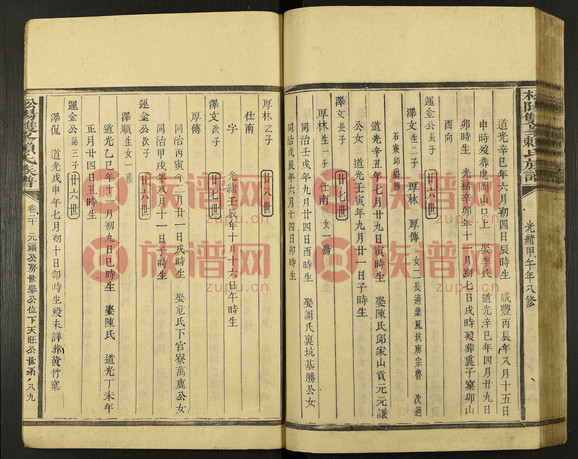 松陽雙峯賴氏族譜
光緒甲午年八修
道光辛巳年六月初四日辰時生 咸豐丙辰年八月十五日
申時殁葬虎岡山口上 娶李氏 道光辛巳年四月廿九日
卯時生 光緒辛卯年十一月初七日戌時殁葬裏子窠卯山
酉向
運金公長子 廿六世
澤文 生二子 厚林 厚傳 女二長適葉
澤文長子 廿七世
道光辛丑年九月廿九日寅時生 娶陳氏邱家山貢元元謙
公女 道光壬寅年九月廿一日子時生
厚林 生一子 仕南 女一
同治壬戌年九月廿四日酉時生 娶謝氏裏坑基勝公女
同治壬戌年六月十四日卯時生
厚林之子 廿八世
仕南
字 光緒壬辰年八月十六日午時生
澤文次子 廿七世
厚傳
同治壬寅年八月廿一日辰時生 娶危氏下官寮萬慮公女
同治甲戌年八月十一日子時生
運金公次子 廿六世
澤順 生女一
道光乙巳年十一月初九日巳時生 娶陳氏 道光丁未年
正月廿四日丑時生
運金公第三子 廿六世
澤侃 道光戊申年七月初十日卯時生殁未詳葬黃竹窠
松陽雙峯賴氏族譜
卷二十 元顯公房世舉公位下天旺公世系 八九
族谱网
zupu.cn